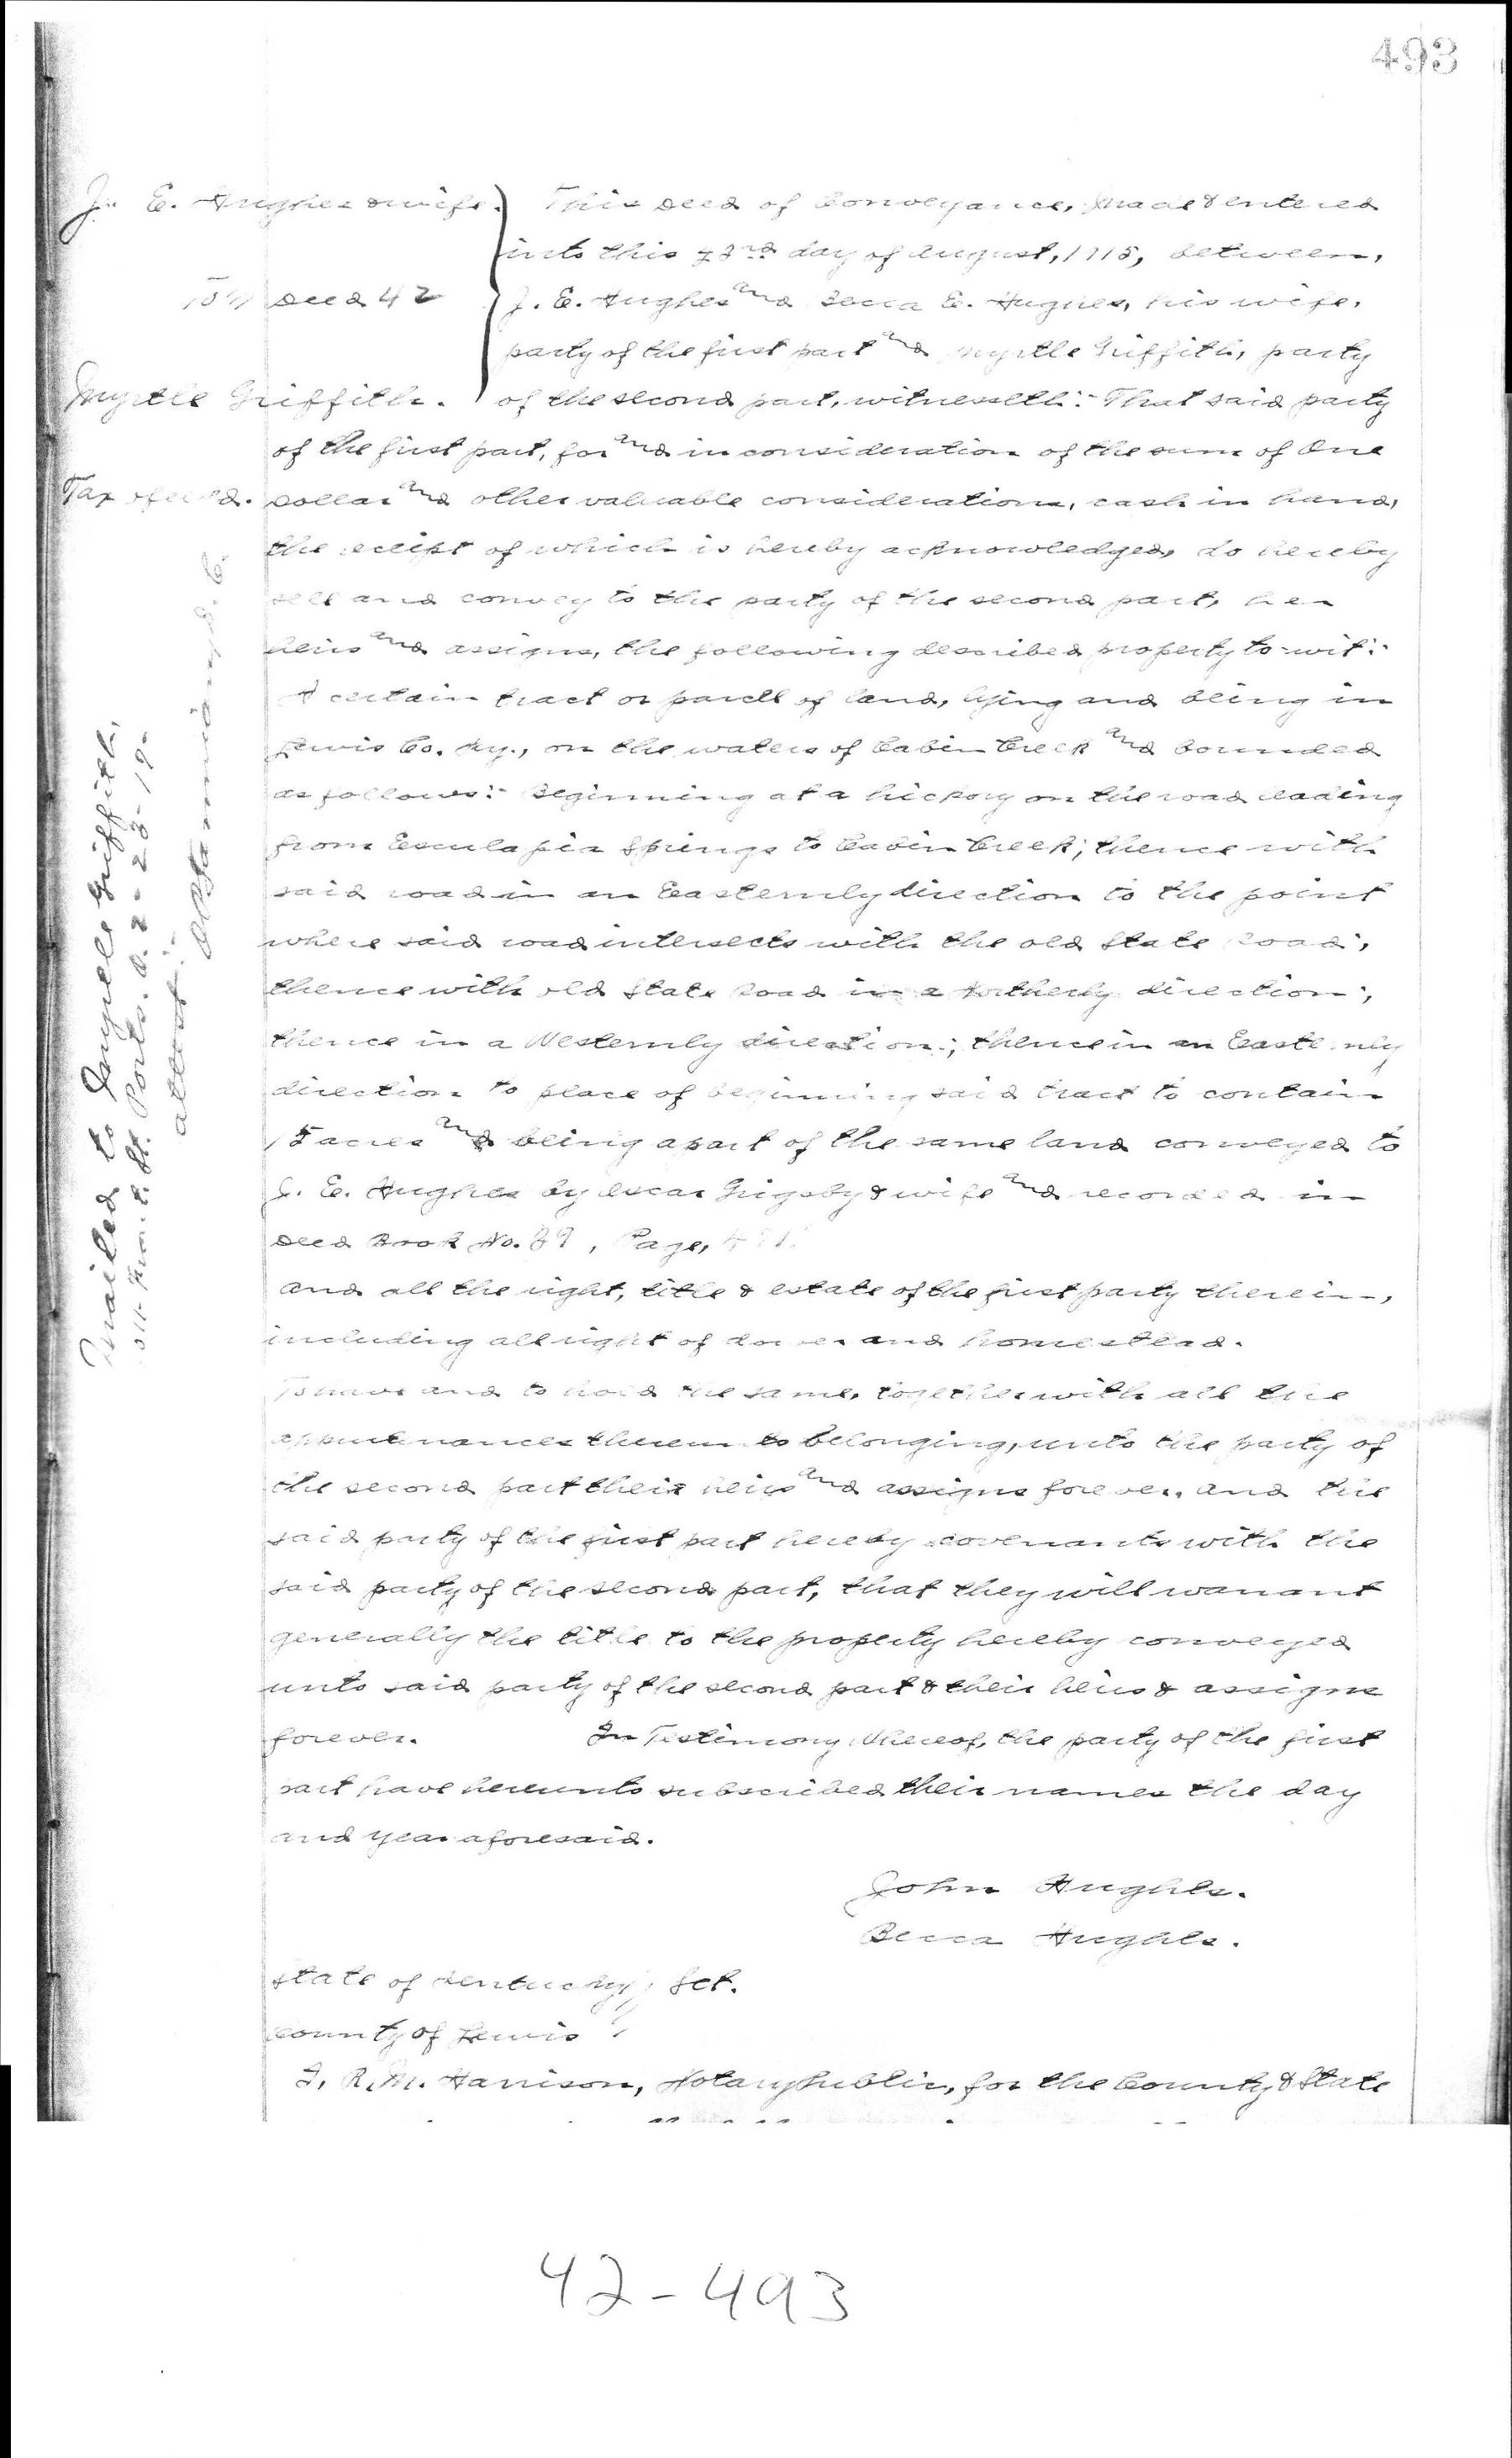 493
J. E. Hughes & wife.
To // Deed 42
Myrtle Griffith.
Tax
This Deed of Conveyance, made & entered
into this 23rd day of August, 1915, between,
J. E. Hughes and Becca E. Hughes, his wife,
party of the first part and Myrtle Griffith, party
of the second part, witnesseth:- That said party
of the first part, for and in consideration of the sum of One
Dollar and other valuable considerations, cash in hand,
the receipt of which is hereby acknowledged, do hereby
sell and convey to the party of the second part, her
heirs and assigns, the following described property to-wit:-
A certain tract or parcll of land, lying and being in
Lewis Co. Ky., on the waters of Cabin Creek and bounded
as follows:- Beginning at a hickory on the road leading
from Esculapia Springs to Cabin Creek; thence with
said road in an Easternly direction to the point
where said road intersects with the old State Road;
thence with old State Road in a direction;
thence in a Westernly direction; thence in an Easternly
direction to place of beginning said tract to contain
acres and being a part of the same land conveyed to
J. E. Hughes by Oscar Grigsby & wife and recorded in
Deed Book No. 39, Page,
and all the right, title & estate of the first party therein,
including all right of dower and homestead.
To have and to hold the same, together with all the
appurtenances thereunto belonging, unto the party of
the second part their heirs and assigns forever, and the
said party of the first part hereby covenants with the
said party of the second part, that they will warrant
generally the title to the property hereby conveyed
unto said party of the second part & their heirs & assigns
forever. In Testimony Whereof, the party of the first
part have hereunto subscribed their names the day
and year aforesaid.
John Hughes.
Becca Hughes.
State of Kentucky, Sct.
County of Lewis
I, R. M. Harrison, Notary Public, for the County & State
Mailed to Myrtle Griffith,
Ports. O. 2-23-19.
attest:-
42-493